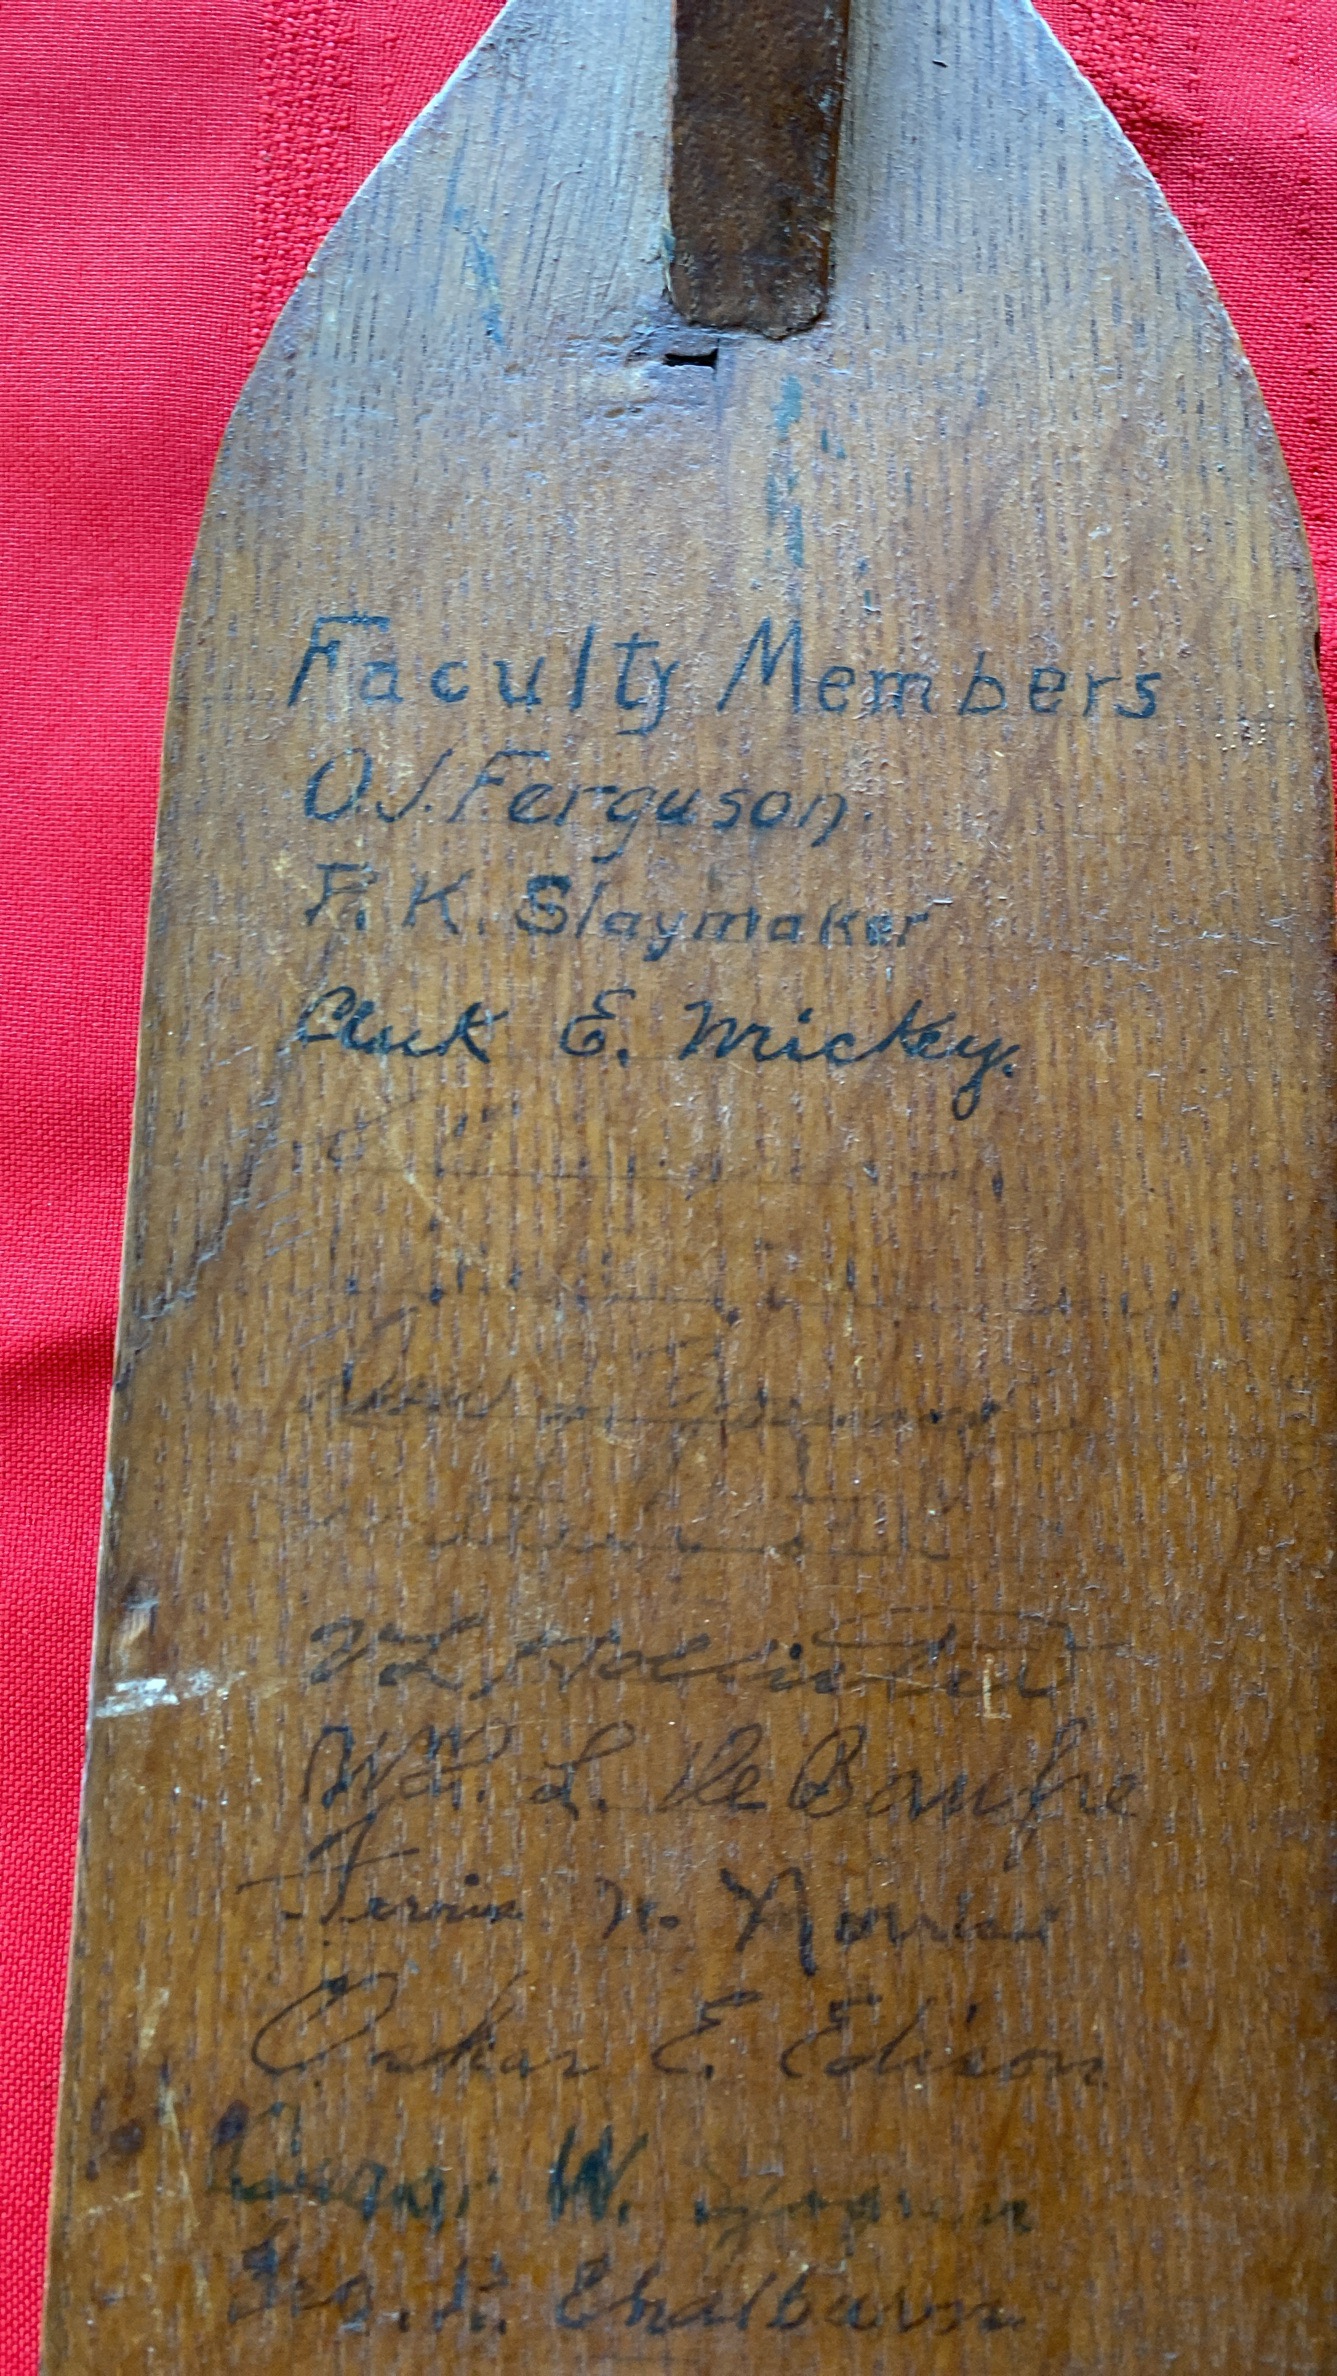 Faculty Members
O.J. Ferguson
F. K. Slaymaker
Clark E. Mickey.
V L Hollister
Wm. L. De Baufre
Ferris W. Norris
Oskar E. Edison
W.
Geo. R. Chatburn